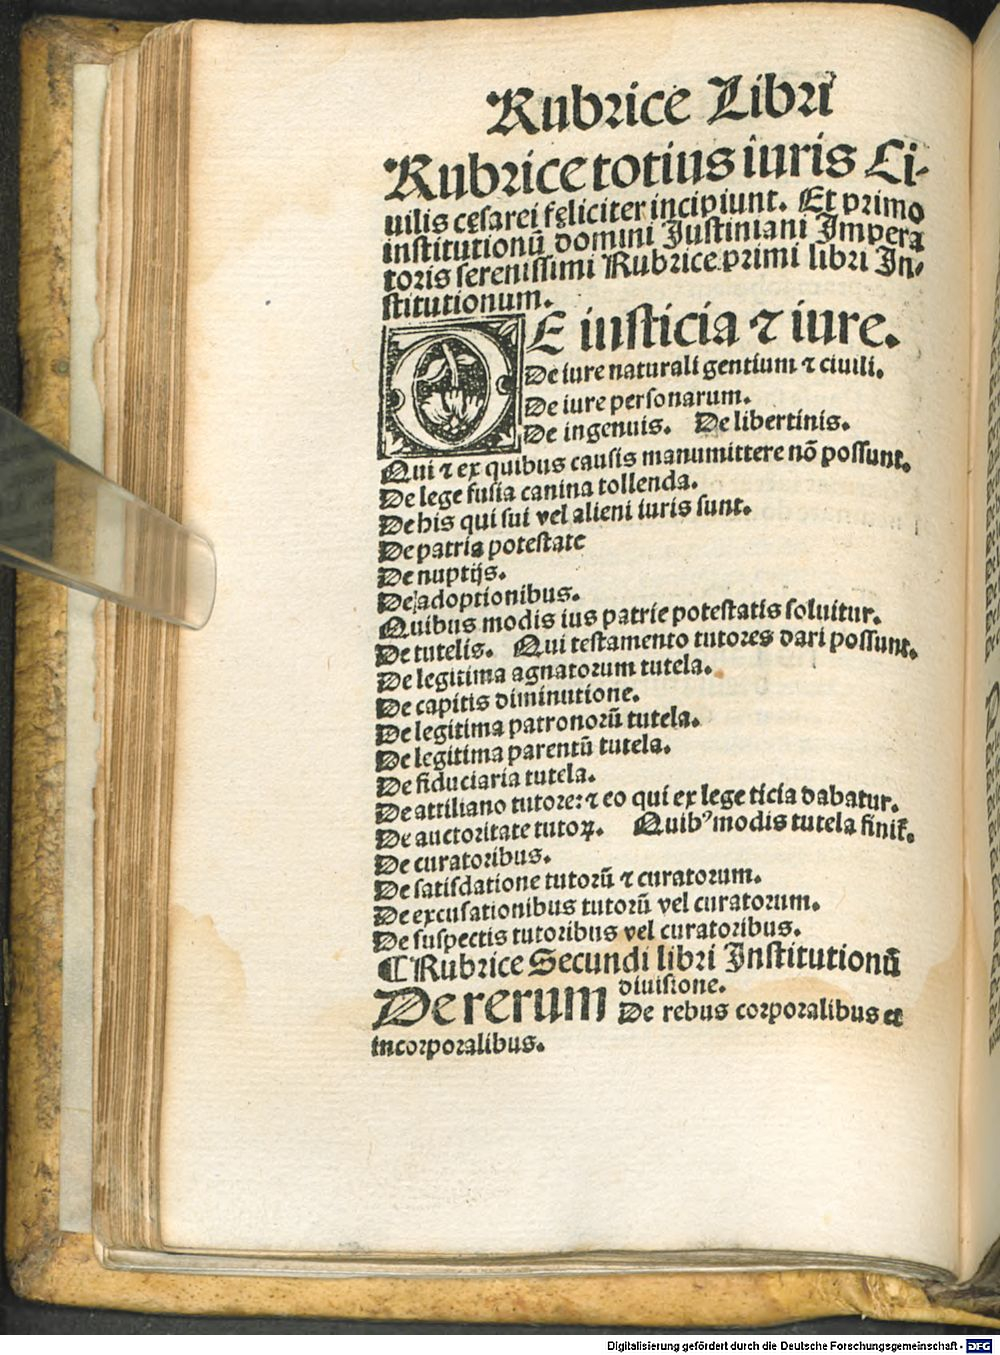 Rubrice Libri
Rubrice totius iuris Ci-
uilis cęsarei fęliciter incipiunt. Et primo
institutionū domini Justiniani Impera
toris serenissimi Rubrice primi libri In-
stitutionum.
DE iusticia ⁊ iure.
De iure naturali gentium ⁊ ciuili.
De iure personarum.
De ingenuis. De libertinis.
Qui ⁊ ex quibus causis manumittere nō possunt.
De lege fusia canina tollenda.
De his qui sui vel alieni iuris sunt.
De patria potestate
De nuptijs.
De adoptionibus.
Quibus modis ius patrie potestatis soluitur.
De tutelis. Qui testamento tutores dari possunt.
De legitima agnatorum tutela.
De capitis diminutione.
De legitima patronorū tutela.
De legitima parentū tutela.
De fiduciaria tutela.
De attiliano tutore: ⁊ eo qui ex lege ticia dabatur.
De auctoritate tutoꝝ. Quibꝰ modis tutela finit᷑.
De curatoribus.
De satisdatione tutorū ⁊ curatorum.
De excusationibus tutorū vel curatorum.
De suspectis tutoribus vel curatoribus.
¶ Rubrice Secundi libri Institutionū
De rerum diuisione.
De rebus corporalibus et
incorporalibus.
Digitalisierung gefördert durch die Deutsche Forschungsgemeinschaft - DFG